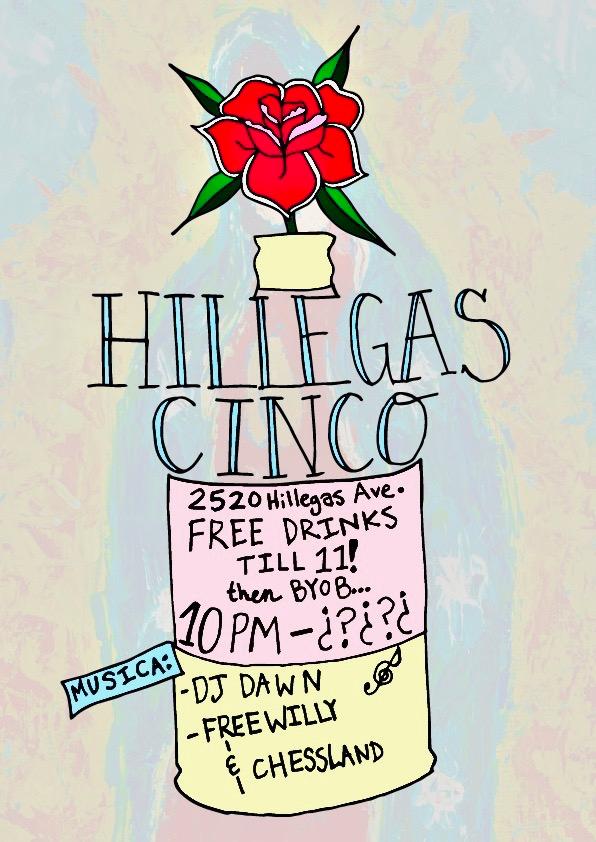 HILLEGAS
CINCO
2520 Hillegas Ave.
FREE DRINKS
TILL 11!
then BYOB...
10PM - ¿?¿?¿
MUSICA:
-DJ DAWN
-FREEWILLY
& CHESSLAND